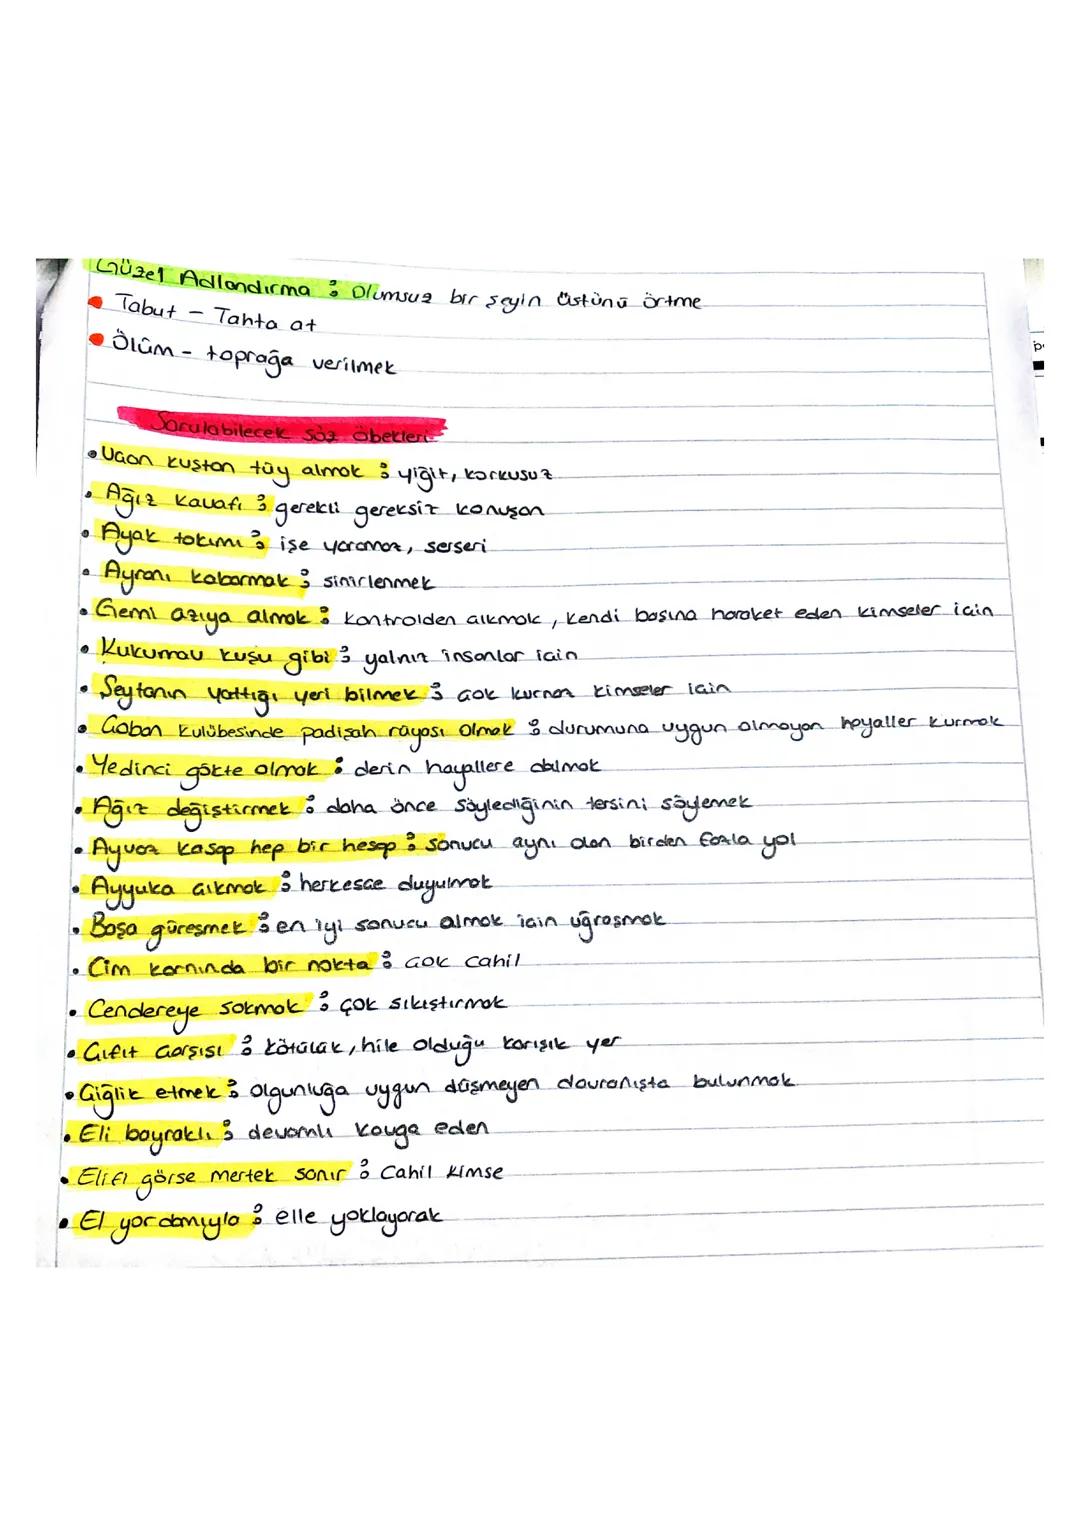 Güzel Adlandırma : Olumsuz bir şeyin üstünü örtme
• Tabut - Tahta at
• Ölüm - toprağa verilmek
Sorulabilecek söz öbekleri
• Uçan kuştan tüy almak : yiğit, korkusuz
• Ağız kavafı : gerekli gereksiz konuşan
• Ayak takımı : işe yaramaz, serseri
• Ayranı kabarmak : sinirlenmek
• Gemi azıya almak : kontrolden çıkmak, kendi başına hareket eden kimseler için
• Kukumav kuşu gibi : yalnız insanlar için
• Şeytanın yattığı yeri bilmek : çok kurnaz kimseler için
• Çoban kulübesinde padişah rüyası olmak : durumuna uygun olmayan hayaller kurmak
• Yedinci gökte olmak : derin hayallere dalmak
• Ağız değiştirmek : daha önce söylediğinin tersini söylemek
• Ayvaz kasap hep bir hesap : sonucu aynı olan birden fazla yol
• Ayyuka çıkmak : herkesçe duyulmak
• Başa güreşmek : en iyi sonucu almak için uğraşmak
• Cim karnında bir nokta : çok cahil
• Cendereye sokmak : çok sıkıştırmak
• Çıfıt çarşısı : kötülük, hile olduğu karışık yer
• Çiğlik etmek : olgunluğa uygun düşmeyen davranışta bulunmak
• Eli bayraklı : devamlı kavga eden
• Elifi görse mertek sanır : Cahil kimse
• El yordamıyla : elle yoklayarak